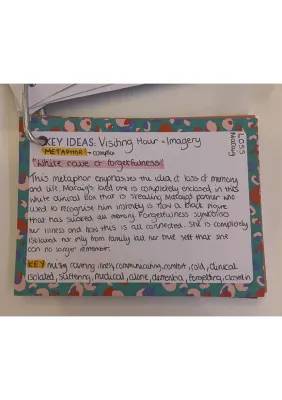 KEY IDEAS: Visiting Hour - Imagery
LOSS
METAPHOR → complex
Norman
"White cave of forgetfulness"
This metaphor emphasises the idea of loss of memory
and life. Maccaig's loved one is completely enclosed in this
white clinical box that is stealing Maccaig's partner who
used to recognise him instantly is now a blank move
that has sucked all memory. Forgetfulness symbolises
her illness and how this is all connected. She is completely
isolated not only from family but her true self that she
can no longer remember.
KEY nursing, covering, illness, communicating, comfort, cold, clinical
isolated, suffering, medical, alone, dementia, forgetting, closed in